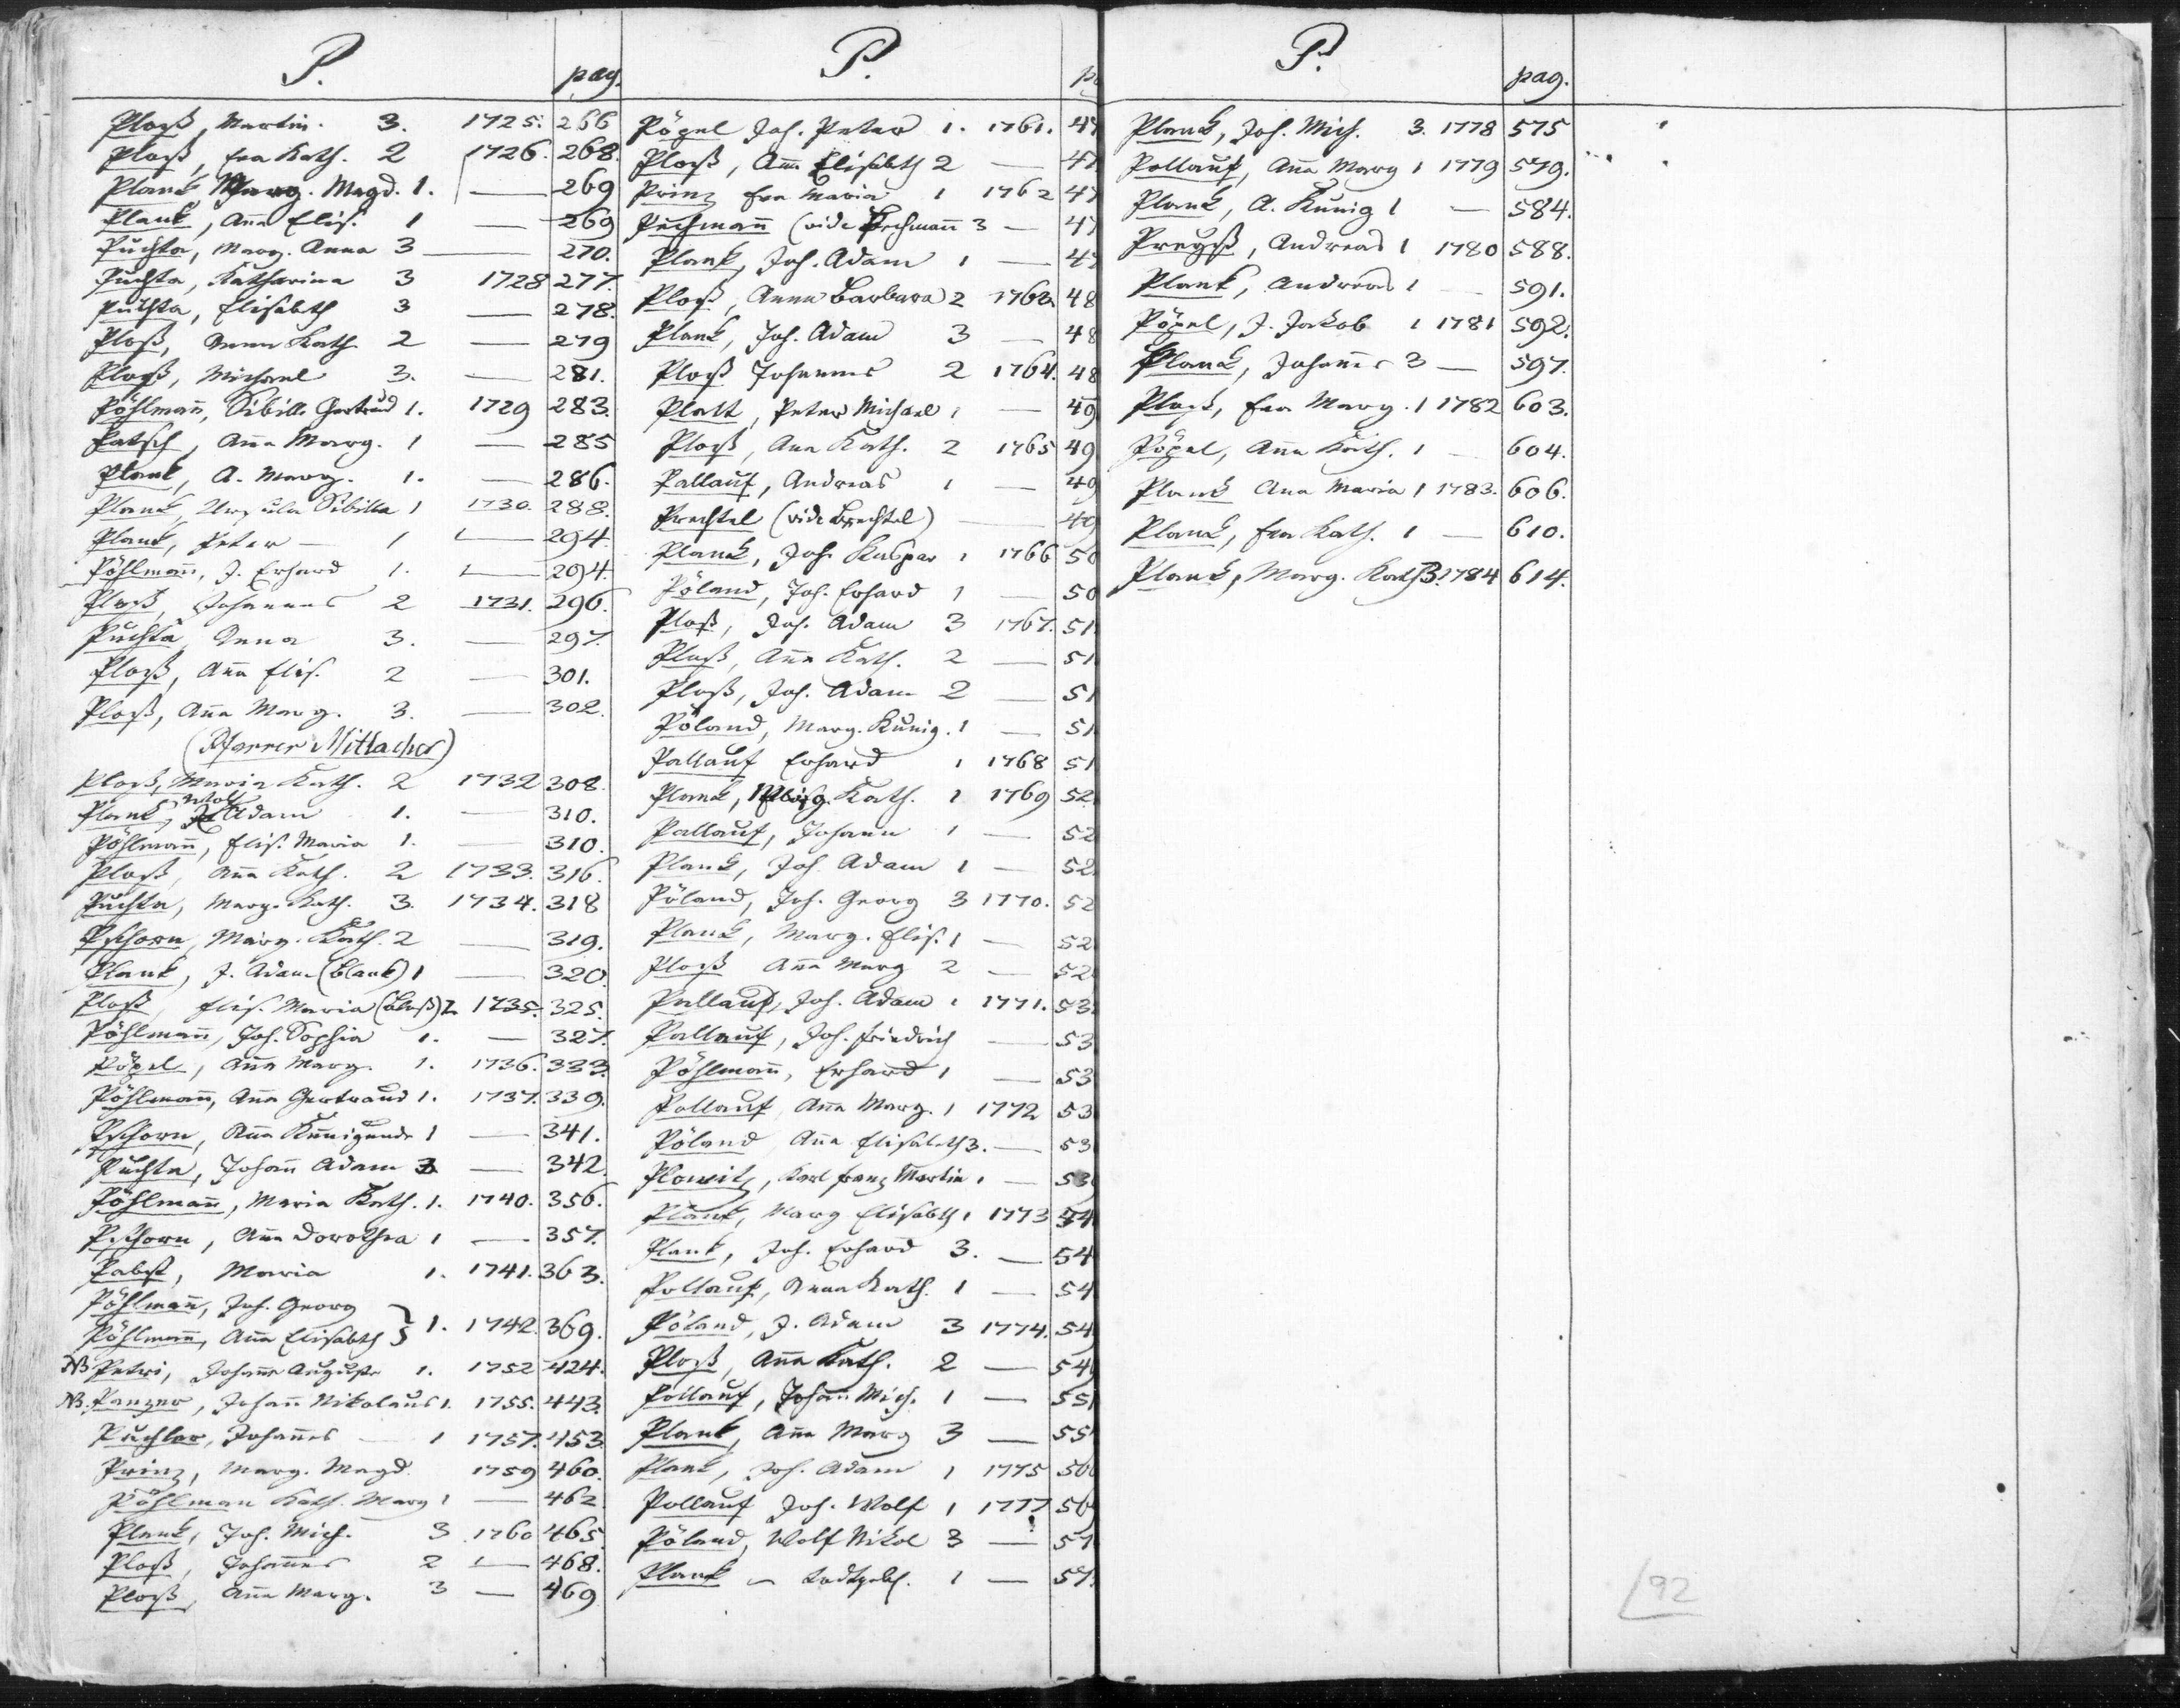 P. pag.
Ploß, Martin. 3. 1725. 266
Ploß, Eva Kath. 2 1726. 268.
Planck, Marg. Magd. 1. — 269
Plank, Anna Elis. 1 — 269
Puchta, Marg. Anna 3 — 270.
Puchta, Katharina 3 1728 277.
Puchta, Elisabeth 3 — 278.
Ploß, Anna Kath. 2 — 279
Ploß, Michael 3. — 281.
Pöhlmañ, Sibilla Gertrud 1. 1729 283.
Patsch, Aña Marg. 1 — 285
Plank, A. Marg. 1. — 286.
Planck, Ursula Sibilla 1 1730. 288.
Plank, Peter — 1 — 294.
Pöhlmañ, J. Erhard 1. — 294.
Ploß, Johannes 2 1731. 296.
Puchta Anna 3. — 297.
Ploß, Aña Elis. 2 — 301.
Ploß, Aña Marg. 3. — 302.
(Pfarrer Mittacher)
Ploß, Maria Kath. 2 1732 308.
Plank, Adam 1. — 310.
Pöhlmañ, Elis. Maria 1. — 310.
Ploß, Aña Kath. 2 1733. 316.
Puchta, Marg. Kath. 3. 1734. 318
Pschorn, Marg. Kath. 2 — 319.
Plank, J. Adam (Blank) 1 — 320.
Ploß, Elis. Maria (Bloß) 2 1735. 325.
Pöhlmañ, Joh. Sophia 1. — 327.
Pöpel, Aña Marg. 1. 1736. 333.
Pöhlmañ, Aña Gertraud 1. 1737. 339.
Pschorn, Aña Kunigunde 1 — 341.
Puchta, Johañ Adam 3 — 342.
Pöhlmañ, Maria Kath. 1. 1740. 356.
Pschorn, Aña Dorothea 1 — 357.
Pabst, Maria 1. 1741. 363.
Pöhlmañ, Joh. Georg
Pöhlmañ, Aña Elisabeth } 1. 1742. 369.
NB Petri, Johañe Auguste 1. 1752 424.
NB. Panzer, Johañ Nikolaus 1. 1755. 443.
Puchler, Johañes — 1 1757. 453.
Prinz, Marg. Magd. 1759 460.
Pöhlman Kath. Marg 1 — 462
Planck, Joh. Mich. 3 1760 465.
Ploß, Johañes 2 — 468.
Ploß, Aña Marg. 3 — 469
P. pa
Pöpel Joh. Peter 1. 1761. 47
Ploß, Aña Elisabeth 2 — 47
Prinz Eva Maria 1 1762 47
Pechmañ (vide Bechmañ 3 — 47
Plank, Joh. Adam 1 — 47
Ploß, Anna Barbara 2 1763. 48
Planck, Joh. Adam 3 — 48
Ploß Johannes 2 1764. 48
Platt, Peter Michael 1 — 49
Ploß, Ana Kath. 2 1765 49
Pallauf, Andreas 1 — 49
Prechtel (vide Brechtel) — 49
Planck, Joh. Kaspar 1 1766 50
Pöland, Joh. Erhard 1 — 50
Ploß, Joh. Adam 3 1767. 51
Ploß, Aña Kath. 2 — 51
Ploß, Joh. Adam 2 — 51
Pöland, Marg. Kunig. 1 — 51
Pallauf Erhard 1 1768 51
Planck, Kath. 1 1769 52
Pallauf, Johann 1 — 52
Planck, Joh. Adam 1 — 52
Pöland, Joh. Georg 3 1770. 52
Planck, Marg. Elis. 1 — 52
Ploß Aña Marg 2 — 52
Pallauf, Joh. Adam 1 1771. 53
Pallauf, Joh. Friedrich — 53
Pöhlmañ, Erhard 1 — 53
Pollauf Aña Marg. 1 1772 53
Pöland Aña Elisabeth 3. — 53
Plowitz, Karl Franz Martin 1 — 53
Plank, Marg Elisabeth 1 1773 54
Plank, Joh. Erhard 3. — 54
Pollauf, Anna Kath. 1 — 54
Pöland, J. Adam 3 1774. 54
Ploß, Aña Kath. 2 — 54
Pollauf, Johañ Mich. 1 — 55
Plank, Aña Marg 3 — 55
Planck, Joh. Adam 1 1775 56
Pollauf Joh. Wolf 1 1777 56
Pöland, Wolf Nikol 3 — 57
Plank — todtgeb. 1 — 57
P. pag.
Planck, Joh. Mich. 3. 1778 575
Pollauf, Aña Marg 1 1779 579.
Planck, A. Kunig 1 — 584.
Preyß, Andreas 1 1780 588.
Plank, Andreas 1 — 591.
Pöpel, J. Jakob 1 1781 592.
Planck, Johañes 3 — 597.
Ploß, Eva Marg. 1 1782 603.
Pöpel, Aña Kath. 1 — 604.
Planck Ana Maria 1 1783. 606.
Planck, Eva Kath. 1 — 610.
Planck, Marg. Kath 3. 1784 614.
92